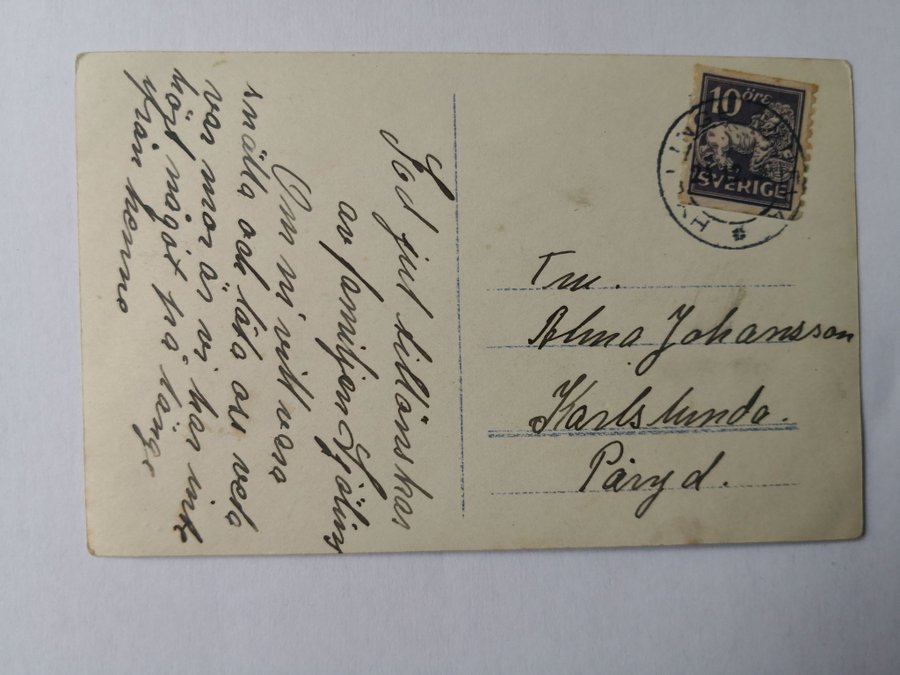 God jul tillönskas
av familjen Sjölin
Om ni vill vara
snälla och låta oss veta
var mor är vi har inte
hört något på länge
från henne
10 ÖRE
SVERIGE
Fru.
Alma Johansson
Karlslunda.
Påryd.